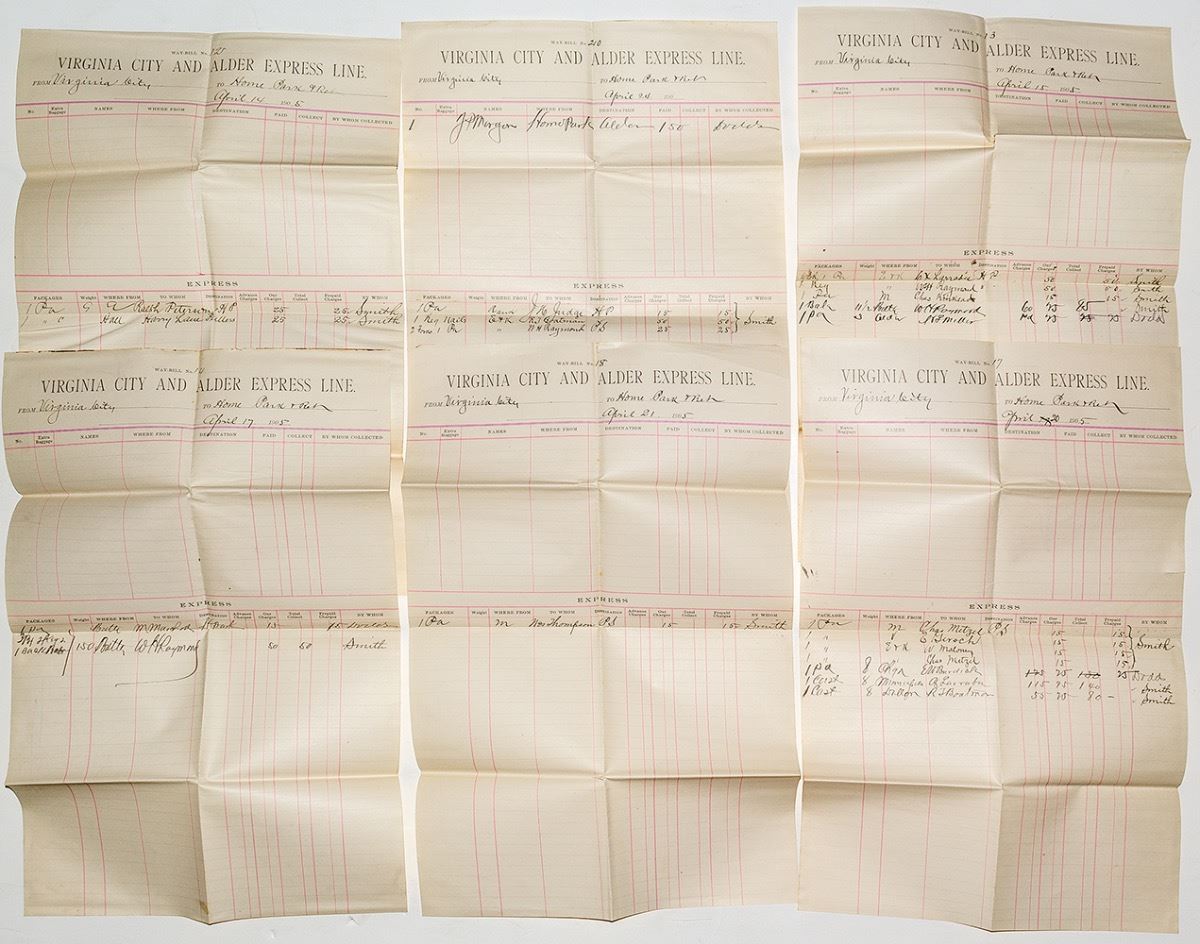 WAY-BILL No.
VIRGINIA CITY AND ALDER EXPRESS LINE.
FROM Virginia City TO Home Park & Ret
April 14 1905
No. Extra Baggage NAMES WHERE FROM DESTINATION PAID COLLECT BY WHOM COLLECTED
EXPRESS
PACKAGES Weight WHERE FROM TO WHOM DESTINATION Advance Charges Our Charges Total Collect Prepaid Charges BY WHOM
1 Pa Ralph Peterson H P 25 25 Smith
1 " Hall Harry Lane 25 25 Smith
WAY-BILL No. 210
VIRGINIA CITY AND ALDER EXPRESS LINE.
FROM Virginia City TO Home Park & Ret
April 24 190
No. Extra Baggage NAMES WHERE FROM DESTINATION PAID COLLECT BY WHOM COLLECTED
1 J P Morgan Home Park Alder 150 Dodds
EXPRESS
PACKAGES Weight WHERE FROM TO WHOM DESTINATION Advance Charges Our Charges Total Collect Prepaid Charges BY WHOM
1 Pa Judge H P 15 15
1 Keg Nails E & K 50 50 Smith
1 Pa " W H Raymond P S 25 25
WAY-BILL No. 13
VIRGINIA CITY AND ALDER EXPRESS LINE.
FROM Virginia City TO Home Park & Ret
April 15 1905
No. Extra Baggage NAMES WHERE FROM DESTINATION PAID COLLECT BY WHOM COLLECTED
EXPRESS
PACKAGES Weight WHERE FROM TO WHOM DESTINATION Advance Charges Our Charges Total Collect Prepaid Charges BY WHOM
E & K H P 50 50 Smith
1 Keg " W H Raymond " 50 50 Smith
Pa M Chas 15 15 Smith
1 Butte W H Raymond 60 25 85 Smith
1 Pa Miller 75 75 Dodd
WAY-BILL No. 14
VIRGINIA CITY AND ALDER EXPRESS LINE.
FROM Virginia City TO Home Park & Ret
April 17 1905
No. Extra Baggage NAMES WHERE FROM DESTINATION PAID COLLECT BY WHOM COLLECTED
EXPRESS
PACKAGES Weight WHERE FROM TO WHOM DESTINATION Advance Charges Our Charges Total Collect Prepaid Charges BY WHOM
1 Pa Butte 15 15 Dodds
150 Butte W H Raymond 50 50 Smith
WAY-BILL No. 18
VIRGINIA CITY AND ALDER EXPRESS LINE.
FROM Virginia City TO Home Park & Ret
April 21 1905
No. Extra Baggage NAMES WHERE FROM DESTINATION PAID COLLECT BY WHOM COLLECTED
EXPRESS
PACKAGES Weight WHERE FROM TO WHOM DESTINATION Advance Charges Our Charges Total Collect Prepaid Charges BY WHOM
1 Pa M Thompson P S 15 15 Smith
WAY-BILL No. 17
VIRGINIA CITY AND ALDER EXPRESS LINE.
FROM Virginia City TO Home Park & Ret
April 20 1905
No. Extra Baggage NAMES WHERE FROM DESTINATION PAID COLLECT BY WHOM COLLECTED
EXPRESS
PACKAGES Weight WHERE FROM TO WHOM DESTINATION Advance Charges Our Charges Total Collect Prepaid Charges BY WHOM
1 Pa M Chas Metzel P S 15 15
1 " 15 15 Smith
1 " E & K W Maloney 15 15
Chas Metzel 15 15
1 Pa 8 E W Burdick 125 25 150 25 Dodd
1 Cast 8 115 25 140 Smith
1 Cast 8 Dillon R T Boatman 55 25 80 - Smith